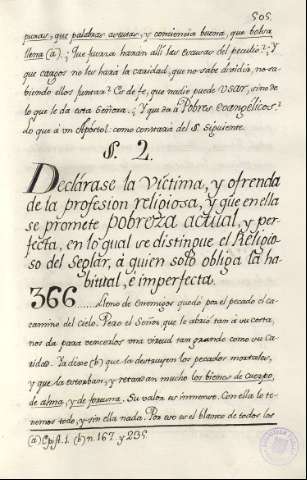 505.
puras, que palabras astutas, y conciencia buena, que bolsa
llena (a). ¿Que fuerza harán alli las escusas del peculio? ¿Y
que cargos no les hará la caridad, que no sabe dividir, no sa-
biendo ellos juntar? Es de fe, que nadie puede usar, sino de
lo que le da esta Señora. ¿Y que da à Pobres evangélicos?
do que á un Apóstol: como constará del §. siguiente.
§. 2.
Declárase la Víctima, y ofrenda
de la profesion religiosa, y que en ella
se promete pobreza actual, y per-
fecta, en lo qual se distingue el Religio-
so del Seglar, á quien solo obliga la ha-
bitual, é imperfecta.
366 Lleno de enemigos quedó por el pecado el ca-
camino del cielo. Pero el Señor, que le abrió tan à su costa,
nos da para vencerlos una virtud tan grande como su ca-
ridad. Ya dixe (b) que la destruyen los pecados mortales,
y que la estorban, y retardan mucho los bienes de cuerpo,
de alma, y de fortuna. Su valor es inmenso. Con ella lo te-
nemos todo, y sin ella nada. Por eso es el blanco de todos los
(a) Epist. 1. (b) n. 167. y 235.